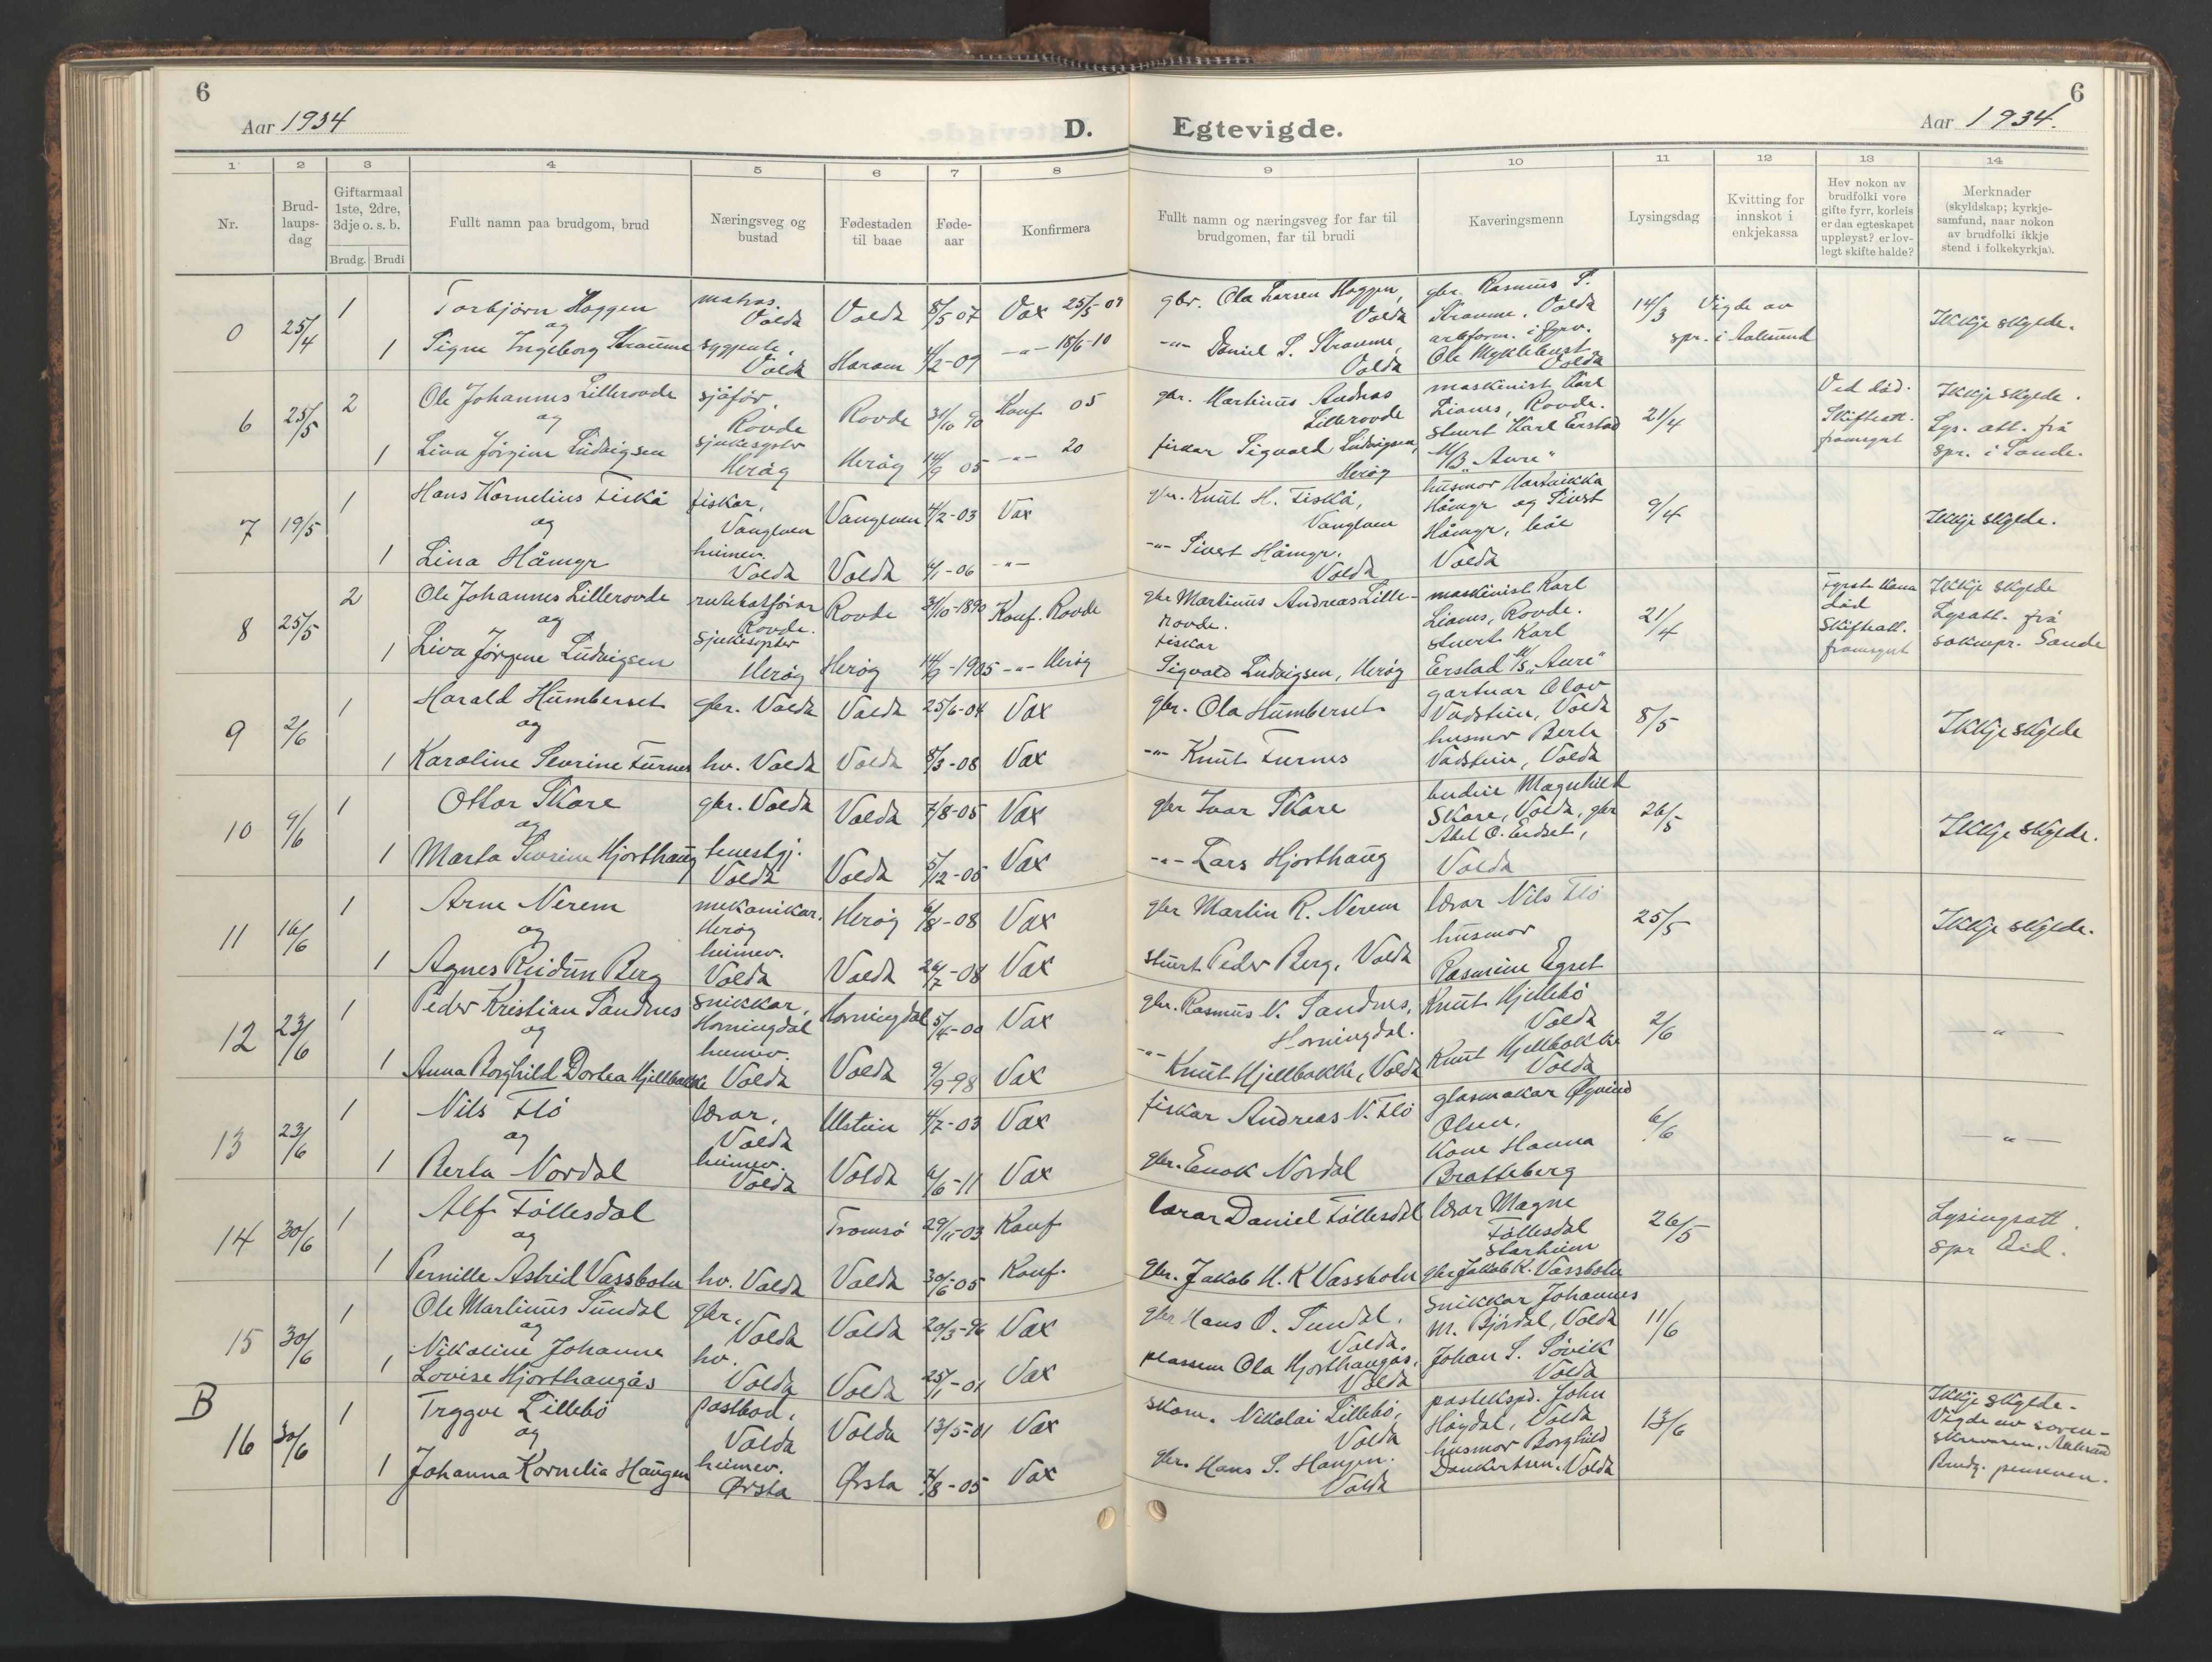 6
Aar 1934
D.
Egtevigde.
Aar 1934.
6
1 2 3 4 5 6 7 8 9 10 11 12 13 14
Nr.
Brud-
laups-
dag
Giftarmaal
1ste, 2dre,
3dje o. s. b.
Brudg. Brudi
Fullt namn paa brudgom, brud
Næringsveg og
bustad
Fødestaden
til baae
Føde-
aar
Konfirmera
Fullt namn og næringsveg for far til
brudgomen, far til brudi
Kaveringsmenn
Lysingsdag
Kvitting for
innskot i
enkjekassa
Hev nokon av
brudfolki vore
gifte fyrr, korleis
er daa egteskapet
uppløyst? er lov-
legt skifte halde?
Merknader
(skyldskap; kyrkje-
samfund, naar nokon
av brudfolki ikkje
stend i folkekyrkja).
0 25/4 1 Torbjørn Haggen
og
1 Signe Ingeborg Straume
matros.
Volda
Volda
Volda 8/5 07 Vax 25/5-07
Haram 4/2-09 -"- 15/6-10
gbr. Ola Larsen Haggen,
Volda
-"- Daniel S. Straume,
Volda
gbr. Rasmus S.
Straume, Volda
Ole Myklebust
Volda
14/3 Vigde av
spr. i Aalesund
Ikkje skylde.
6 25/5 2 Ole Johannes Lillerovde
og
1 Liva Jørgine Ludvigsen
sjåfør,
Rovde
sjukesyster
Herøy
Rovde 31/10 90 Konf 05
Herøy 14/9 05 -"- 20
gbr. Martinus Andreas
Lillerovde
fiskar Sigvald Ludvigsen,
Herøy
maskinist Karl
Lianes, Rovde.
stuert Karl Erstad
M/B "Aure"
21/4
Ved død.
Skifteatt.
framsynt
Ikkje skylde.
Lys. att. frå
spr. i Sande.
7 19/5 1 Hans Kornelius Fiskå
og
1 Lina Håmyr
fiskar,
Vanylven
heimev.
Volda
Vanylven 4/2-03 Vax
Volda 4/1-06 -"-
gbr. Knut H. Fiskå,
Vanylven
-"- Sivert Håmyr.
Volda
husmor
Håmyr og Sivert
Håmyr, båe
Volda
9/4
Ikkje skylde.
8 25/5 2 Ole Johannes Lillerovde
og
1 Liva Jørgine Ludvigsen
rutebatførar
Rovde.
sjukesyster
Herøy
Rovde 31/10-1890 Konf. Rovde
Herøy 14/9-1905 -"- Herøy
gbr Martinus Andreas Lille-
rovde.
fiskar
Sigvald Ludvigsen, Herøy
maskinist Karl
Lianes, Rovde.
stuert Karl
Erstad M/S "Aure"
21/4
Fyrste kona
død
Skifteatt.
framsynt
Ikkje skylde
Lysatt. frå
soknepr. Sande
9 2/6 1 Harald Humberset
og
1 Karoline Sevrine Furnes
gbr. Volda
hv. Volda
Volda 25/6-04 Vax
Volda 8/3-08 Vax
gbr. Ola Humberset
-"- Knut Furnes
gartnar Olav
Vadstein, Volda
husmor Berte
Vadstein, Volda
8/5
Ikkje skylde
10 9/6 1 Ottar Skare
og
1 Marta Sevrine Hjorthaug
gbr. Volda
tenestgj.
Volda
Volda 7/8-05 Vax
Volda 5/12-05 Vax
gbr Ivar Skare
-"- Lars Hjorthaug
budeie Magnhild
Skare, Volda, gbr
Abel O. Eidset,
Volda
26/5
Ikkje skylde.
11 16/6 1 Arne Nerem
og
1 Agnes Reidun Berg
mekanikar.
Herøy
heimev.
Volda
Herøy 6/8-08 Vax
Volda 26/7-08 Vax
gbr Martin R. Nerem
stuert Peder Berg, Volda
lærar Nils Flö
husmor
Rasmine Egset
25/5
Ikkje skylde.
12 23/6 1 Peder Kristian Sandnes
og
1 Anna Borghild Dortea Hjellbakke
snikkar,
Horningdal
heimev.
Volda
Horningdal 5/4-00 Vax
Volda 9/9-98 Vax
gbr. Rasmus N. Sandnes,
Horningdal.
-"- Knut Hjellbakke, Volda
Knut Hjellebö
Volda
Knut Hjellbakke
Volda
2/6
-"-
13 23/6 1 Nils Flö
og
1 Berta Nordal
lærar,
Volda
heimev.
Volda
Ulstein 4/7-03 Vax
Volda 6/6-11 Vax
fiskar Andreas N. Flö
gbr. Enok Nordal
glasmakar Øyvind
Olsen,
Kone Hanna
Bratteberg
6/6
-"-
14 30/6 1 Alf Föllesdal
og
1 Pernille Astrid Vassbotn
hv. Volda
Tromsö 29/11-03 Konf
Volda 30/6-05 Konf.
lærar Daniel Föllesdal
gbr. Jakob H. K Vassbotn
lærar Magne
Föllesdal
Starheim
gbr Jakob K. Vassbotn
26/5
Lysingsatt.
spr Eid.
15 30/6 1 Ole Martinus Sundal
og
1 Nikoline Johanne
Lovise Hjorthaugås
gbr,
Volda
hv.
Volda
Volda 20/3-96 Vax
Volda 25/1-01 Vax
gbr Hans O. Sundal,
Volda.
plassem Ola Hjorthaugås,
Volda
snikkar Johannes
M. Bjørdal, Volda
Johan S. Søvik
Volda
11/6
B
16 30/6 1 Tryggve Lillebö
og
1 Johanna Kornelia Haugen
postbod,
Volda
heimev.
Ørsta
Volda 13/5-01 Vax
Ørsta 7/8-05 Vax
skom. Nikolai Lillebö,
Volda
gbr. Hans S. Haugen.
Volda
postekspd. John
Høydal, Volda
husmor Borghild
Dankertsen. Volda
13/6
Ikkje skylde.
Vigde av soren-
skrivaren, Aalesund